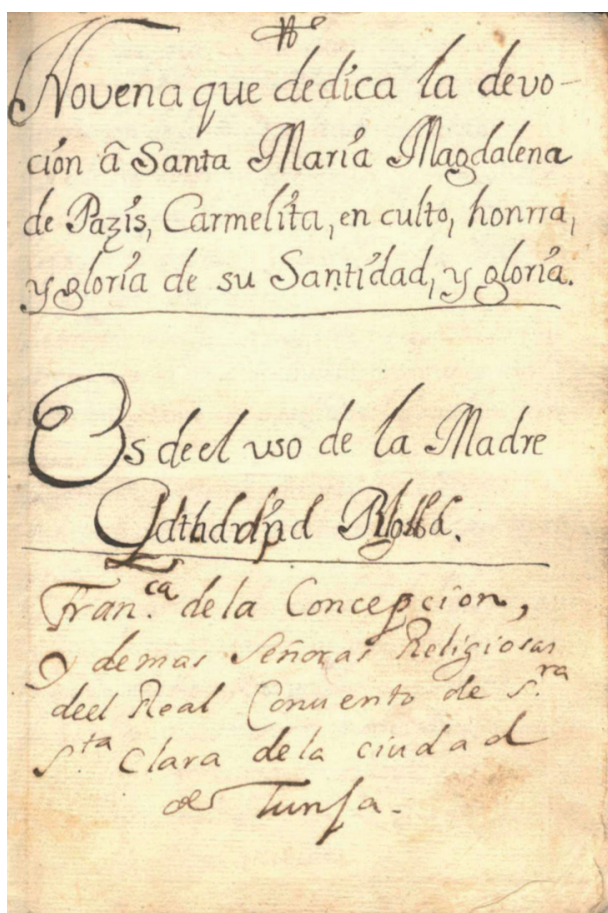 Novena que dedica la devo-
ción â Santa María Magdalena
de Pazis, Carmelita, en culto, honrra,
y gloria de su Santidad, y gloria.
Es deel uso de la Madre
Fran.ca de la Concepcion,
y demas Señoras Religiosas
deel Real Convento de S.ra
S.ta Clara de la ciudad
de Tunja.